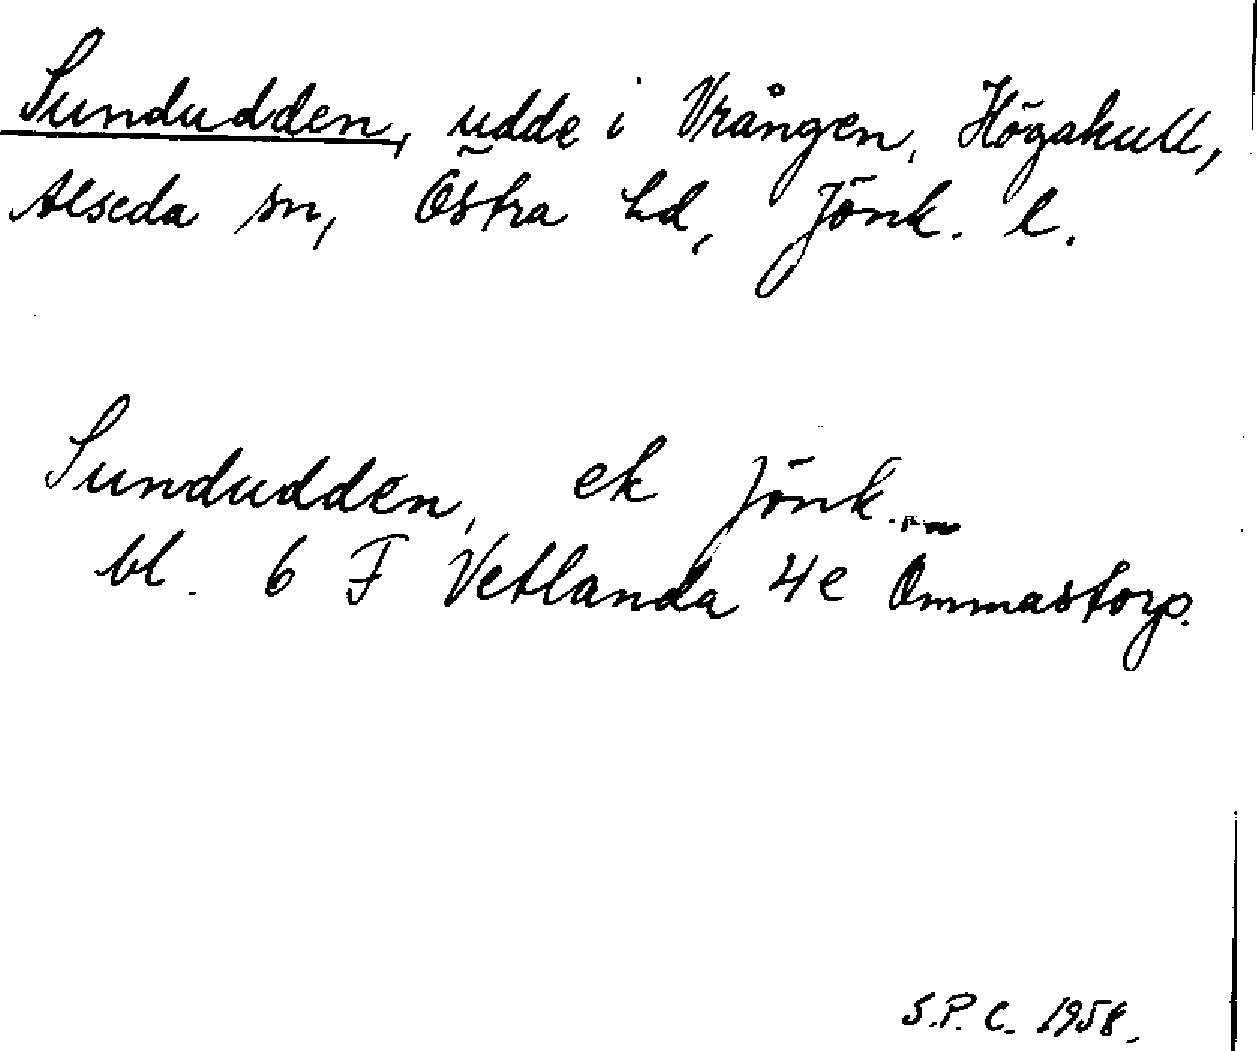 Sundudden, udde i Vrången, Högakull,
Alseda sn, Östra hd, Jönk. l.
Sundudden, ek Jönk.
bl. 6 F Vetlanda 4e Ömmastorp.
S.P.C. 1958.